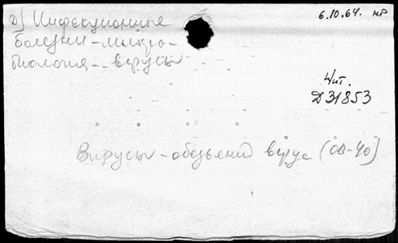 д) Инфекционные
болезни - микро-
биология - вирусы
6.10.64. нр
Чит.
Д31853
Вирусы - обезьяний вирус (ОВ-40)